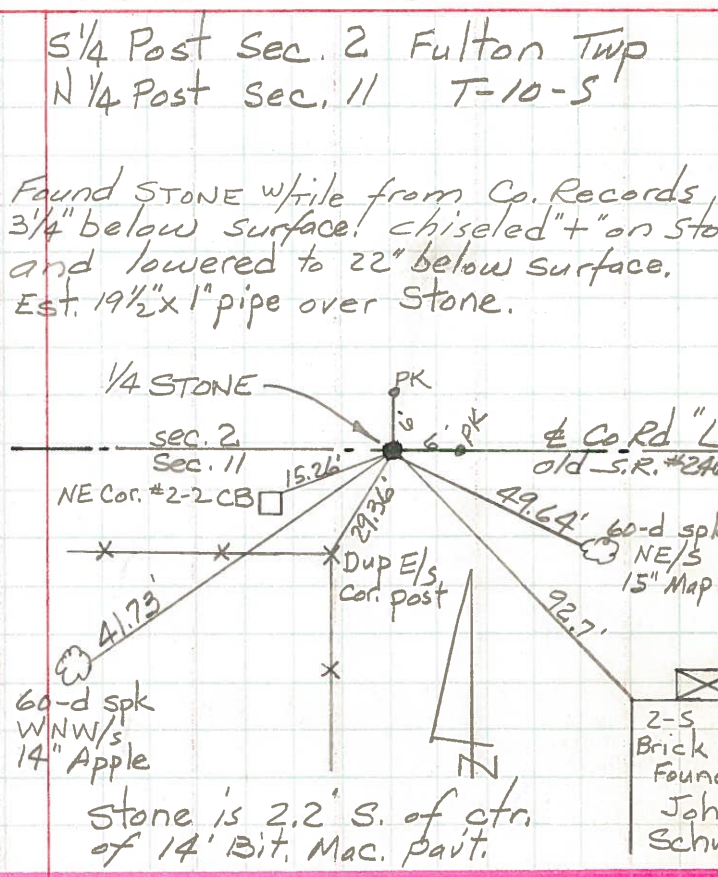 S 1/4 Post Sec. 2 Fulton Twp
N 1/4 Post Sec. 11 T-10-S
Found STONE w/tile from Co. Records,
3 1/4" below surface. chiseled "+" on Sto
and lowered to 22" below surface.
Est. 19 1/2" x 1" pipe over Stone.
1/4 STONE
PK
6'
6'
PK
sec. 2
Sec. 11
℄ Co Rd "L
old S.R. #246
15.26'
NE Cor. #2-2 CB
29.36'
49.64'
60-d spk
NE/s
15" Map
Dup E/s
Cor. post
41.73'
92.7'
60-d spk
WNW/s
14" Apple
N
2-S
Brick
Found
Joh
Schu
Stone is 2.2' S. of ctr.
of 14' Bit. Mac. pavt.